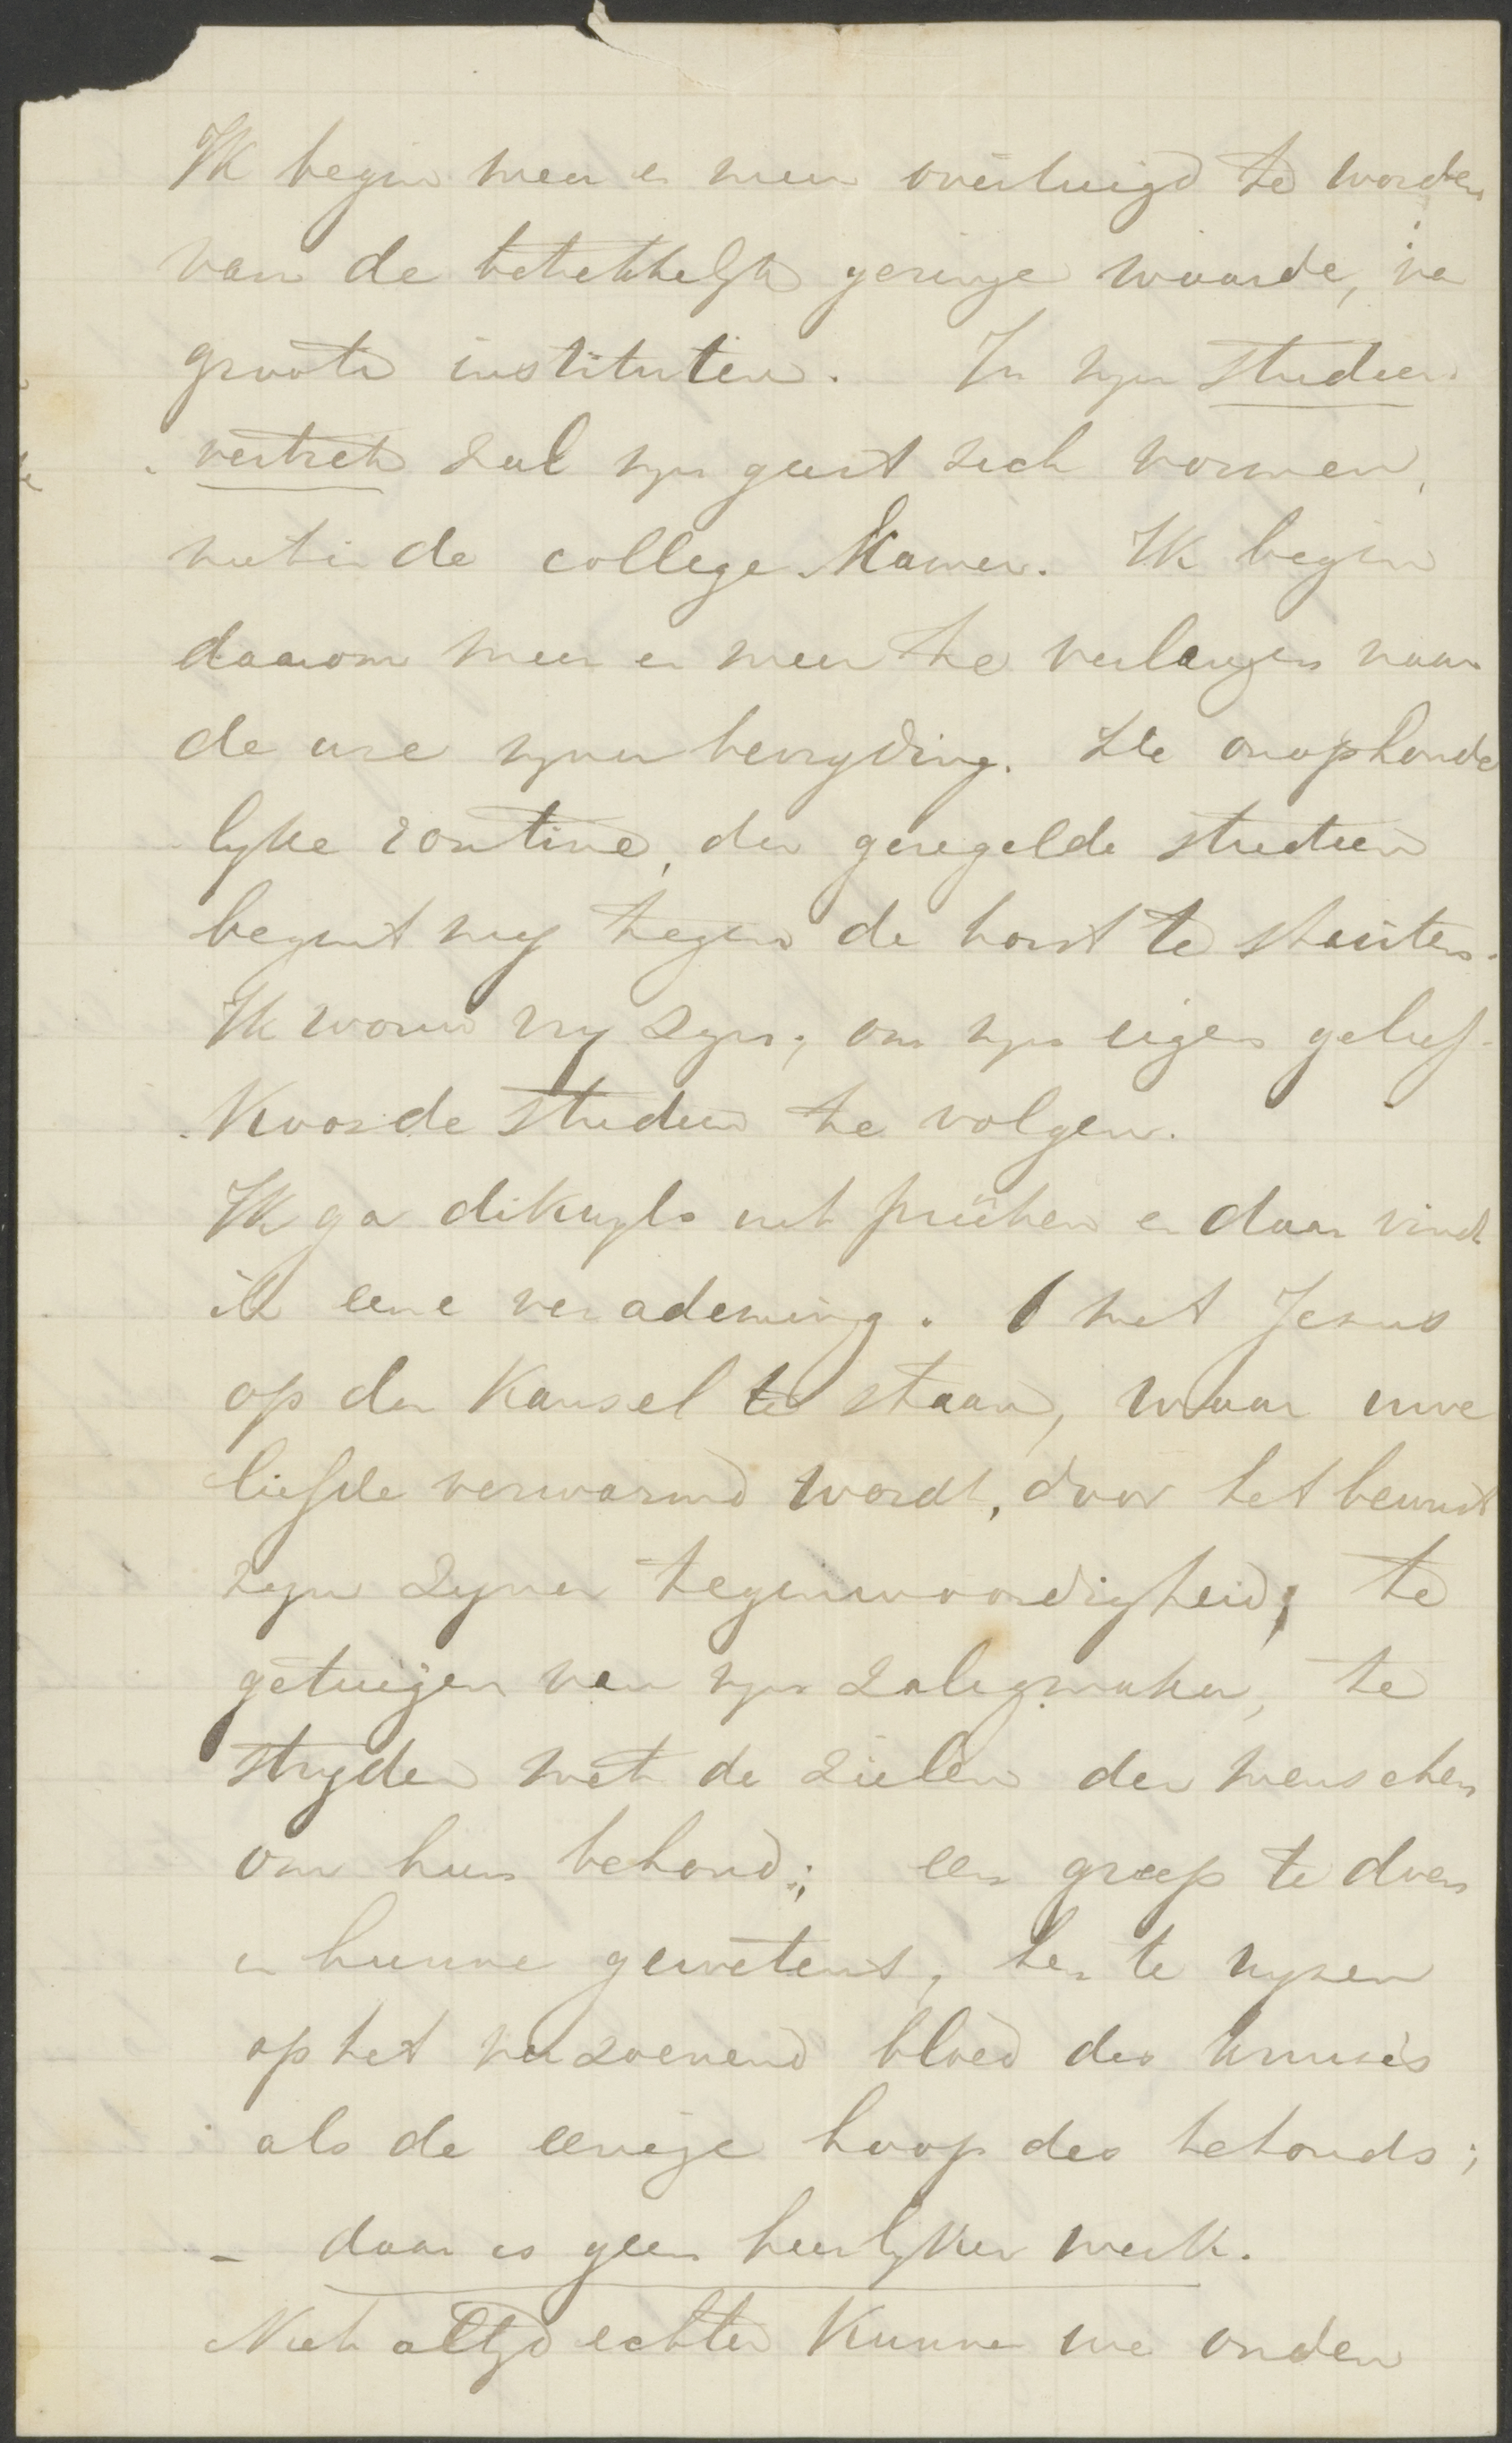 Ik begin meer en meer overtuigd te worden
van de betrekkelyk geringe waarde, va
groote instituten. In myn studeer
vertrek zal myn geest zich vormen,
niet in de college-Kamer. Ik begin
daarom meer en meer te verlangen naar
de ure myner bevryding. De onophoude
lyke routine, der geregelde studien
begint my tegen de borst te stuiten.
Ik wou vry zyn; om myn eigen gelief-
Koosde studien te volgen.
Ik ga dikwyls uit preeken en daar vindt
ik eene verademing. O met Jesus
op den Kansel te staan, waar uwe
liefde verwarmd wordt, door het bewust
zyn zyner tegenwoordigheid; te
getuigen van myn zaligmaker, te
stryden met de zielen der menschen
om hun behoud; een greep te doen
in hunne gewetens, hen te wyzen
op het verzoenend bloed des kruises
als de eenige hoop des behouds;
- daar is geen heerlyker werk.
Niet altyd echter Kunnen we onder